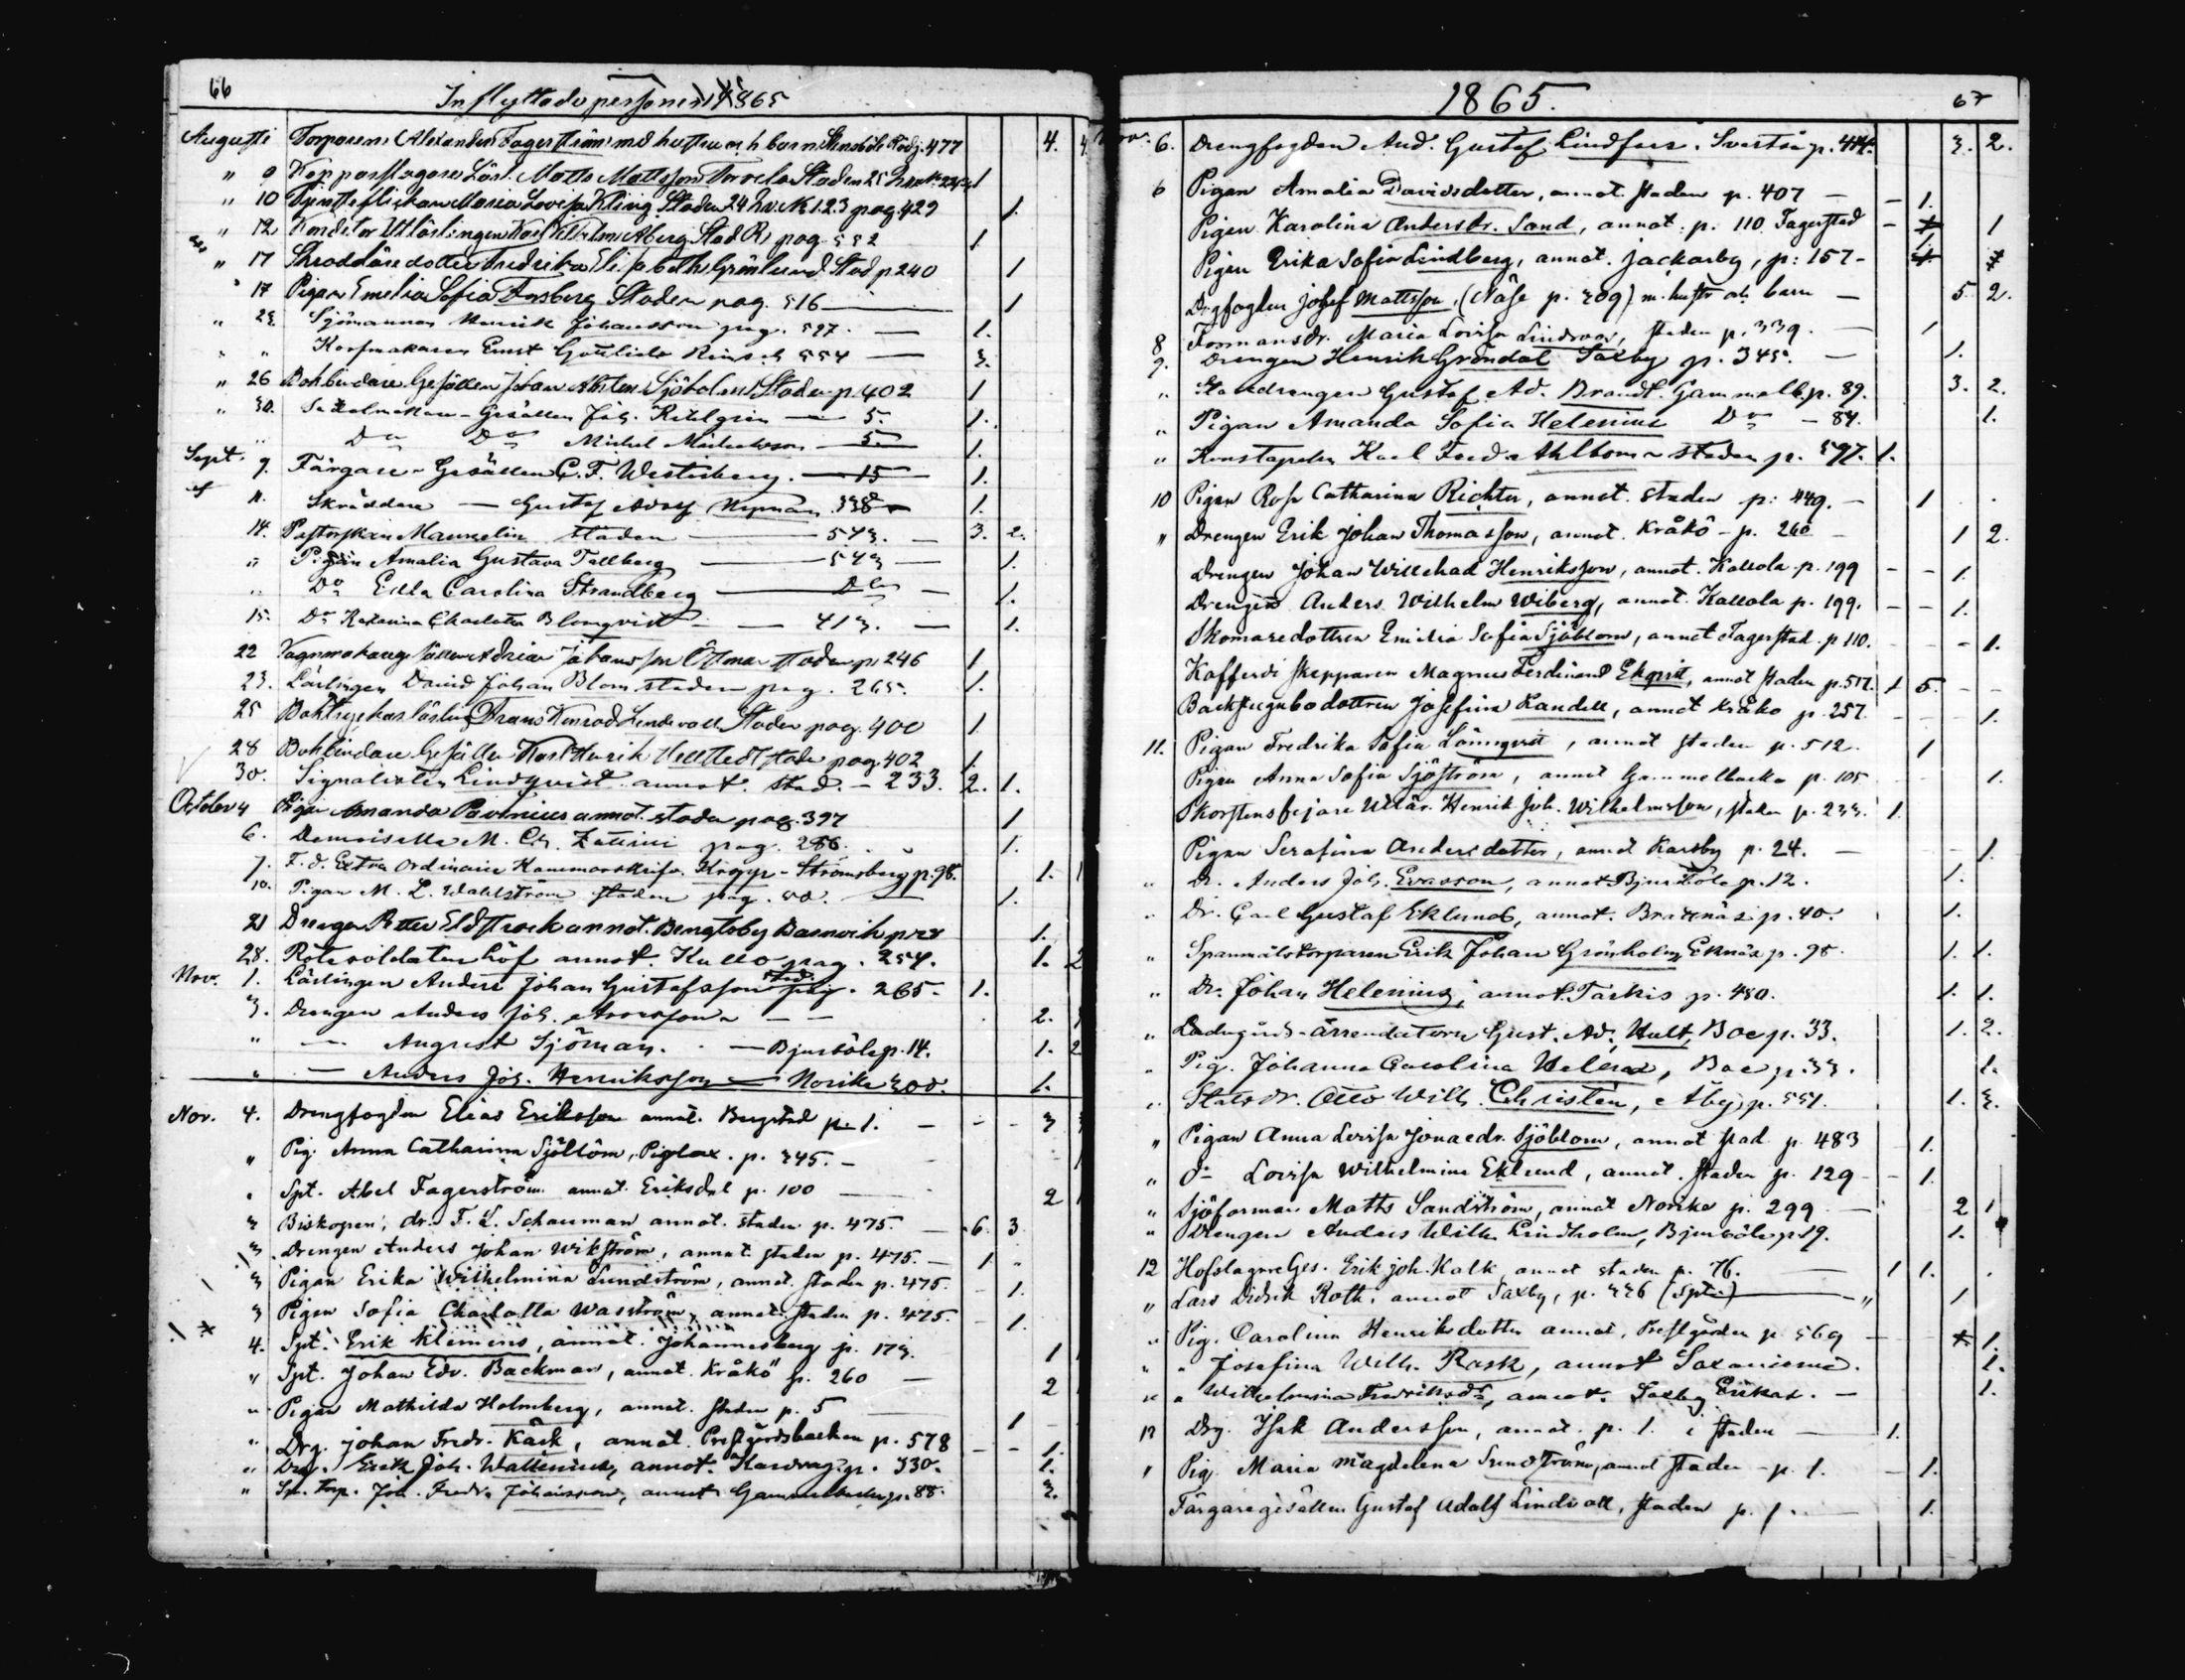 66
Inflyttade personer 1865
Augusti Torparen Alexander Fagerström med hustru och barn Stensböle Rådg. 477 4. 4.
" 9 Kopparslagare Lärl. Matts Mattsson Staden 25 1
" 10 Tjensteflickan Maria Lovisa Kling Staden 24 h.v. N 1.2.3 pag. 429 1.
" 12 Konditor Utlärlingen Karl Åberg Stad pag 552 1
" 17 Skräddaredotter Fredrika Elisabeth Grönlund Stad p 240 1
" 17 Pigan Emelia Sofia Forsberg Staden pag. 516 1
" 23. Sjömannen Henrik Johansson pag. 597. 1.
" " Korfmakaren Ernst Gottlieb 554 3.
" 26 Bokbindare Gesällen Johan Sjöholm Staden p. 402 1
" 30. Sadelmakare-Gesällen Joh. 5. 1.
" Do Do Michel Michelsson 5. 1.
Sept. 9. Färgare-Gesällen C. F. Westerberg. 15 1.
11. Skräddare Gustaf Adolf Nyman. 338 1.
14. Pastorskan Mannelin staden 543. 3. 2.
" Pigan Amalia Gustava Tallberg 543 1.
" Do Edla Carolina Strandberg Do 1.
15. Do Katarina Charlotta Blomqvist 413. 1.
22 Vagnmakaregesällen Adrian Johansson Öffman staden p. 246 1
23. Lärlingen David Johan Blom staden pag. 265. 1.
25 Boktryckarlärling Frans Konrad Lindevall Staden pag. 400 1
28 Bokbindare Gesällen Karl Henrik Hellstedt staden pag 402 1.
30. Signalisten Lindqvist annot. stad. - 233. 2. 1.
October 4 Pigan Amanda Pavlinius annot. staden pag. 397 1
6. Demoiselle M. Ch. pag. 286. 1.
7. F. d. Extra Ordinarie Kammarskrifv. - Stromsberg p. 98. 1. 1
10. Pigan M. L. Wahlström staden pag. 1.
21 Drengen Petter Eldstrock annot. Bengtsby 1.
28. Rotesoldaten Löf annot. Kullo pag. 254. 1. 2
Nov. 1. Lärlingen Anders Johan Gustafsson stad. pag. 265. 1.
3. Drengen Anders Joh. Aronsson 2.
" — August Sjöman. — Bjurböle p. 14. 1. 2
" — Anders Joh. Henriksson — Norike 300. 1.
Nov. 4. Drengfogden Elias Eriksson annot. Bergstad p. 1. 3
" Pig. Anna Catharina Sjöblom, Piglax. p. 345.
" Spt. Abel Fagerström annot. Eriksdal p. 100 2
" Biskopen, dr. F. L. Schauman annot. staden p. 475. 6. 3
" Drengen Anders Johan Wikström, annot. staden p. 475. 1.
" Pigan Erika Wilhelmina Lundström, annot. staden p. 475. 1.
" Pigan Sofia Charlotta Wasström, annot. staden p. 475. 1.
4. Spt. Erik Klimenis, annot. Johannesberg p. 173. 1
" Spt. Johan Edv. Backman, annot. Kråkö p. 260 2
" Pigan Mathilda Holmberg, annot. staden p. 5 1
" Drg. Johan Fredr. Käck, annot. Prestgårdsbacken p. 578 1.
" Drg. Erik Joh. Wallenius, annot. p. 330. 1.
" Sp. torp. Joh. Fredr. Johansson, annot. Gammelbacka p. 88. 3.
1865.
67
Nov. 6. Drengfogden And. Gustaf Lindfors. Svartså p. 414. 3. 2.
6 Pigan Amalia Davidsdotter, annot. staden p. 407 1.
Pigan Karolina Andersdr. Sand, annot. p. 110 Fagerstad 1
Pigan Erika Sofia Lindberg, annot. Jackarby, p: 157
Drgfogden Josef Mattsson, (Näse p. 209) m. hustr och barn 5 2.
8 Formansdr. Maria Lovisa Lindroos, staden p. 339. 1
9. Drengen Henrik Gröndal Saxby p. 345. 1.
" Statdrengen Gustaf Ad. Brandt. Gammelb. p. 89. 3. 2.
" Pigan Amanda Sofia Helenius Do - 84. 1.
" Konstapeln Karl Fred. Ahlbom staden p. 597. 1.
10 Pigan Rosa Catharina Richter, annot. staden p: 449. 1
" Drengen Erik Johan Thomasson, annot. Kråkö - p. 260 1 2.
Drengen Johan Willehad Henriksson, annot. Kallola p. 199 1.
Drengen Anders Wilhelm Wiberg, annot. Kallola p. 199. 1.
Skomaredottren Emilia Sofia Sjöblom, annot. Fagerstad. p 110. 1.
Kofferdi skepparen Magnus Ferdinand Ekqvist, annot staden p. 517. 1 5.
Backstugubodottren Josefina Randell, annot Kråkö p. 257. 1.
11. Pigan Fredrika Sofia Lönnqvist, annot staden p. 512. 1
Pigan Anna Sofia Sjöström, annot Gammelbacka p. 105 1.
Skorstensfejare Utlär. Henrik Joh. Wilhelmsson, staden p. 233. 1.
Pigan Serafina Andersdotter, annot Karsby p. 24. 1.
" Dr. Anders Joh. Evasson, annot. Bjurböle p. 12. 1.
" Dr. Carl Gustaf Eklund, annot. Braxnäs p. 40. 1.
" Spannmålstorparen Erik Johan Grönholm, Eknäs p. 98. 1. 1.
" Dr. Johan Helenius, annot. Tarkis p. 480. 1. 1.
" Ladugårds-arrendatorn Gust. Ad. Hult, Boe p. 33. 1. 2.
" Pig. Johanna Carolina Helena, Boe p. 33. 1.
" Statsdr. Otto Wilh. Christen, Åby p. 551. 1. 3.
" Pigan Anna Lovisa Jonaedr. Sjöblom, annot stad p. 483 1.
" do Lovisa Wilhelmina Eklund, annot. staden p. 129 1.
" Sjöforman Matts Sandström, annot Norike p. 299 2 1
" Drengen Anders Wilh. Lindholm, Bjurböle p 19. 1.
12 Hofslagare Ges. Erik Joh. Kalk annot staden p. 76. 1 1.
" Lars Didrik Roth. annot Saxby, p. 336 (Spt.) 1
" Pig. Carolina Henriksdotter annot. Prestgården p. 569 1.
" " Josefina Wilh. Rask, annot Saxaniemi. 1.
" " Wilhelmina Fredriksdr, annot. Saxby Erikas. 1.
13 Drg. Isak Andersson, annot. p. 1. i staden 1.
" Pig. Maria Magdalena Sundström, annot staden p. 1. 1.
Färgaregesällen Gustaf Adolf Lindvall, staden p. 1. 1.